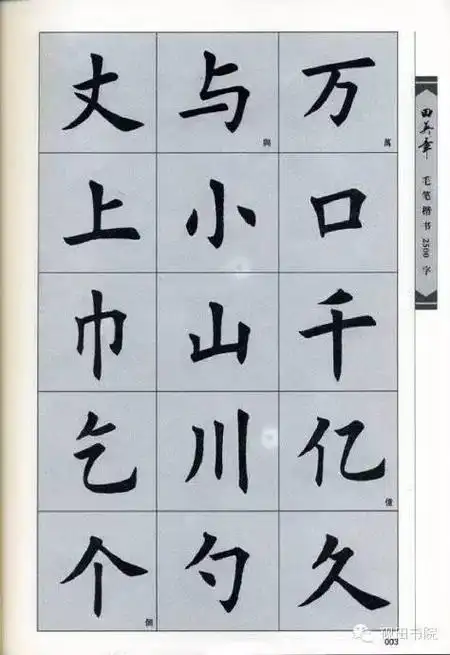 丈 与 與 万 萬
上 小 口
巾 山 千
乞 川 亿 億
个 個 勺 久
田英章 毛笔楷书 2500 字
砚田书院
003